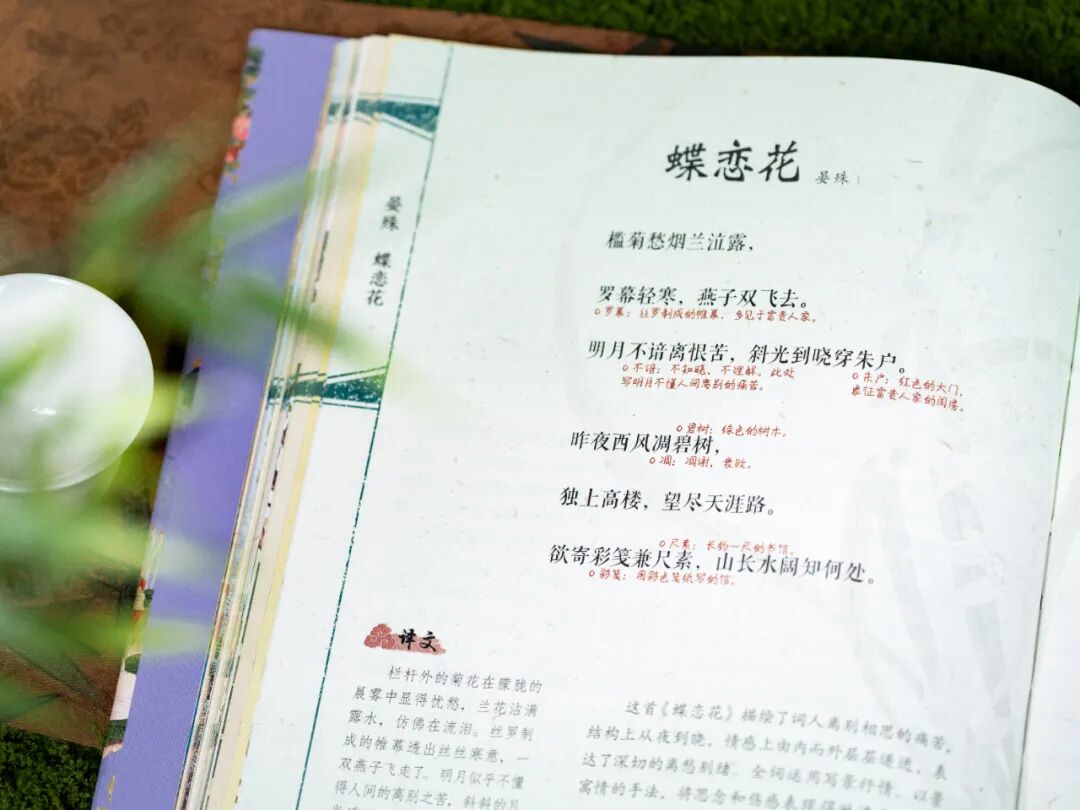 蝶恋花 晏殊
晏殊 蝶恋花
槛菊愁烟兰泣露,
罗幕轻寒,燕子双飞去。
罗幕:丝罗制成的帷幕,多见于富贵人家。
明月不谙离恨苦,斜光到晓穿朱户。
不谙:不知晓,不理解。此处
写明月不懂人间离别的痛苦。
朱户:红色的大门,
象征富贵人家的闺房。
碧树:绿色的树木。
昨夜西风凋碧树,
凋:凋谢,衰败。
独上高楼,望尽天涯路。
尺素:长约一尺的书信。
欲寄彩笺兼尺素,山长水阔知何处。
彩笺:用彩色笺纸写的信。
译文
栏杆外的菊花在朦胧的
晨雾中显得忧愁,兰花沾满
露水,仿佛在流泪。丝罗制
成的帷幕透出丝丝寒意,一
双燕子飞走了。明月似乎不懂
得人间的离别之苦,斜斜的月
这首《蝶恋花》描绘了词人离别相思的痛苦,
结构上从夜到晓,情感上由内而外层层递进,表
达了深切的离愁别绪。全词运用写景抒情、以景
寓情的手法,将思念和伤感表现得